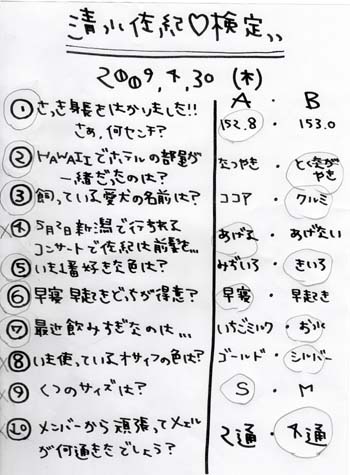 清水佐紀♡検定っっ
2009,4,30 (木)
A ・ B
① さっき身長をはかりました!!
さぁ,何センチ?
152.8 ・ 153.0
② HAWAIIでホテルの部屋が
一緒だったのは?
なつやき ・ とくなが
③ 飼っている愛犬の名前は?
ココア ・ クルミ
④ 5月2日新潟で行われる
コンサートで佐紀は前髪を…
あげる ・ あげない
⑤ いま1番好きな色は?
みずいろ ・ きいろ
⑥ 早寝早起きどっちが得意?
早寝 ・ 早起き
⑦ 最近飲みすぎなのは…
いちごミルク ・ お
⑧ いま使っているオサイフの色は?
ゴールド ・ シルバー
⑨ くつのサイズは?
S ・ M
⑩ メンバーから頑張ってメェル
が何通きたでしょう?
2通 ・ 4通